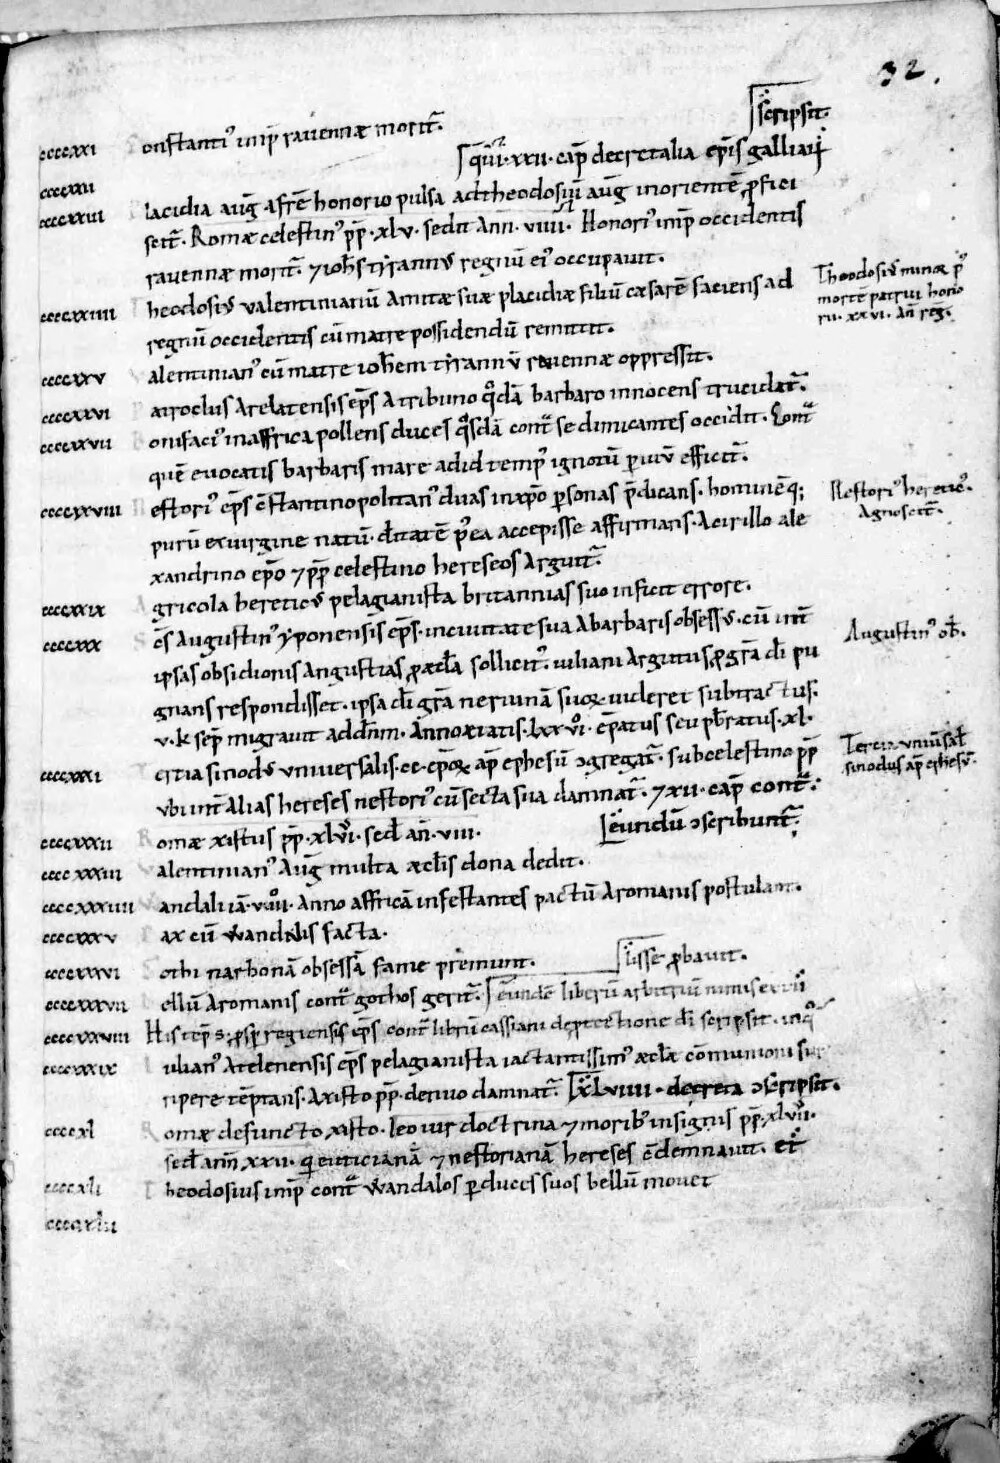 32.
scripsit.
ccccxxi onstanti' imp̄ ravennæ morit̄.
qui xxii. cap̄ decretalia ep̄is galliarū
ccccxxii
ccccxxiii lacidia auḡ a fr̄e honorio pulsa ad theodosiū auḡ in orientē ꝓfici
scit̄. Romæ celestin' pp̄. xlv. sedit ann̄. viiii. Honori' imp̄ occidentis
ravennæ morit̄. ⁊ ioh̄s tyrannus regnū ei' occupavit.
ccccxxiiii heodosius valentinianū amitæ suæ placidiæ filiū cæsarē faciens ad
regnū occidentis cū matre possidendū remittit.
Theodosius minor p'
mortē patrui hono
rii. xxvi. an̄ reḡ.
ccccxxv alentinian' cū matre ioh̄em tyrannū ravennæ oppressit.
ccccxxvi atroclus arelatensis ep̄s a tribuno qdā barbaro innocens trucidat̄.
ccccxxvii onifaci' in affrica pollens duces qsdā contra se dimicantes occidit. Cont
quē evocatis barbaris mare ad id temp' ignotū ꝑviū efficit̄.
ccccxxviii estori' ep̄s c̄stantinopolitan' duas in xp̄o ꝑsonas p̄dicans. hominēq;
purū ex virgine natū. d̄itatē p' ea accepisse affirmans. A cirillo ale
xandrino ep̄o ⁊ pp̄ celestino hereseos arguit̄.
Nestori' heretic'.
Agnoscit̄.
ccccxxix gricola hereticus pelagianista britannias suo inficit errore.
ccccxxx c̄s Augustin' yponensis ep̄s. in civitate sua a barbaris obsessus. cū int
ipsas obsidionis angustias, ꝓ æccl̄a sollicit'. iuliani argutus ꝓ gr̄a dī pu
gnans respondisset. ipsa dī gr̄a ne ruinā suoꝝ videret subtractus.
v. k sep̄ migravit ad dn̄m. Anno ætatis. lxxvi. ep̄atus seu pb̄ratus. xl.
Augustin' ob̄.
ccccxxxi ertia sinodus universalis. cc. ep̄oꝝ ap̄ ephesū ɔgregat̄. sub celestino pp̄
ubi int alias hereses nestori' cū secta sua damnat̄. ⁊ xii. cap̄ contra
Tercia universal̄
sinodus ap̄ ephesū.
eundū ɔscribunt̄.
ccccxxxii omæ xistus pp̄. xlvi. sed̄ an̄. viii.
ccccxxxiii alentinian' Auḡ multa æccl̄is dona dedit.
ccccxxxiiii andali iā. viii. anno affricā infestantes pactū a romanis postulant.
ccccxxxv ax cū wandalis facta.
ccccxxxvi othi narbonā obsessā fame premunt. isse ꝓbavit.
ccccxxxvii ellū a romanis contra gothos gerit̄. eundē liberū arbitriū nimis extu
ccccxxxviii His tēp̄s. ꝓsp̄ regiensis ep̄s contra librū cassiani de ꝓtectione dī scripsit. in q
ccccxxxix ulian' Atelenensis ep̄s pelagianista iactantissim' æccl̄æ cōmunioni sur
ripere tēptans. A xisto pp̄. denuo damnat̄. XLviiii. decreta ɔscripsit.
ccccxl omæ defuncto xisto. leo vir doctrina ⁊ morib' insignis pp̄. xlvii.
sed̄ ann̄ xxii. qi euticianā ⁊ nestorianā hereses c̄demnavit. et
ccccxli heodosius imp̄ contra wandalos ꝑ duces suos bellū movet
ccccxlii